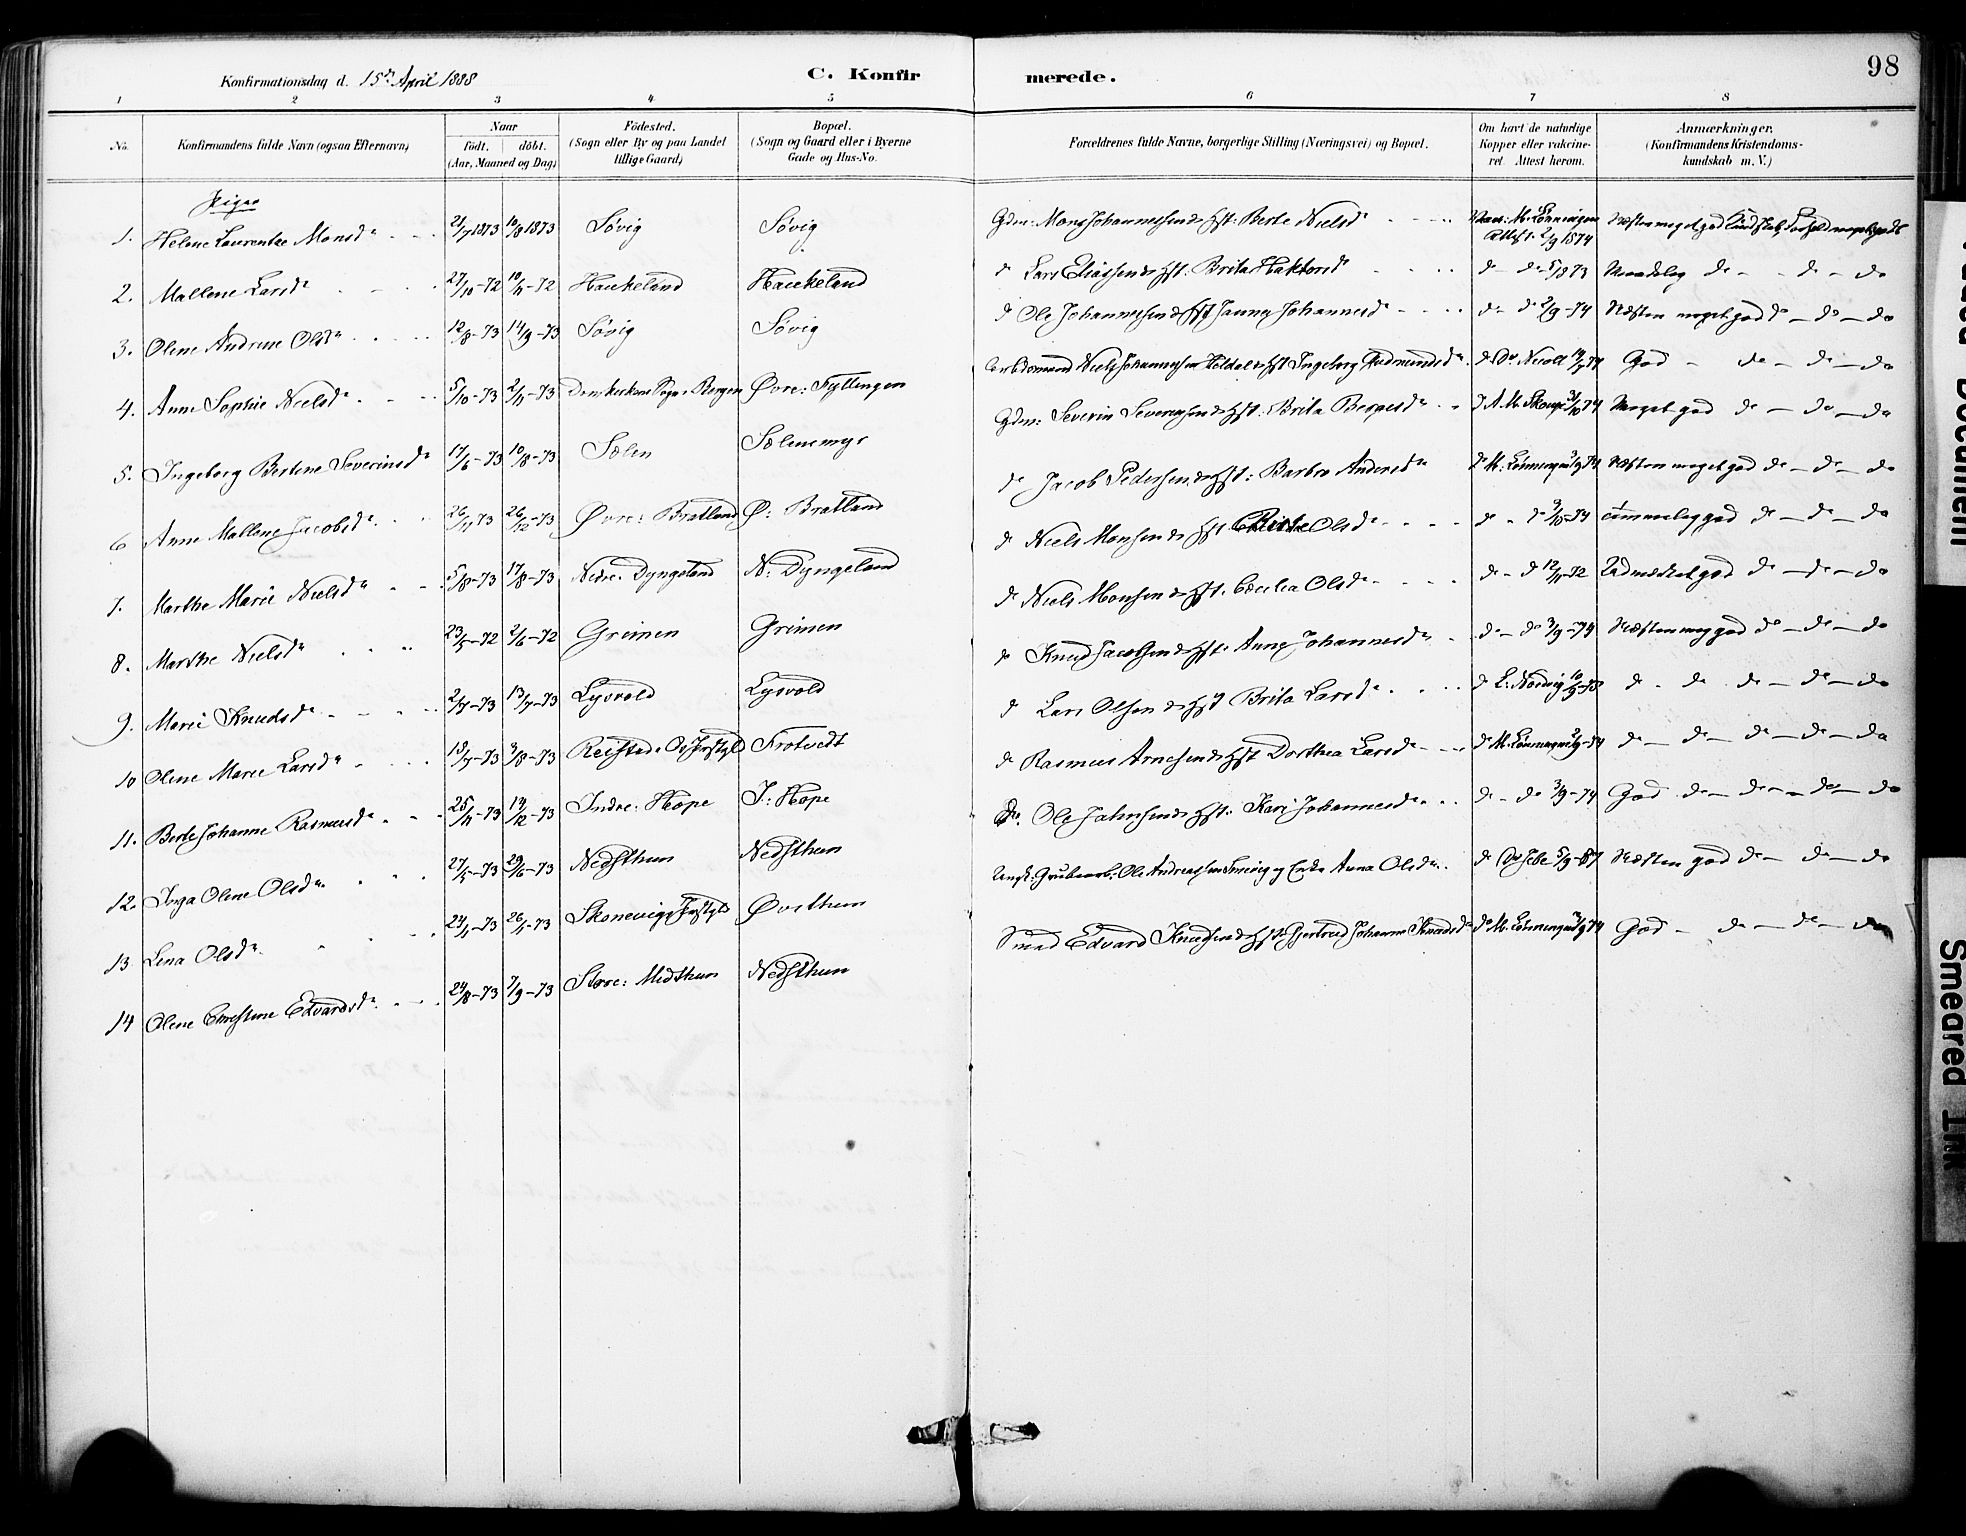 Konfirmationsdag d. 15de April 1888
C. Konfir
merede.
98
1 2 3 4 5 6 7 8
No.
Konfirmandens fulde Navn (ogsaa Efternavn)
Naar
födt. döbt.
(Aar, Maaned og Dag)
Födested.
(Sogn eller By og paa Landet
tillige Gaard)
Bopæl.
(Sogn og Gaard eller i Byerne
Gade og Hus-No.
Forældrenes fulde Navne, borgerlige Stilling (Næringsvei) og Bopæl.
Om havt de naturlige
Kopper eller vaccine-
ret. Attest herom.
Anmærkninger.
(Konfirmandens Kristendoms-
kundskab m. V.)
Piger
1. Helene Laurentze Monsdr 21/7 1873 10/8 1873 Søvig Søvig Gdm: Mons Johannessen & Hst: Berte Nielsdr Vac: M. Lønningen Attest 2/9 1874 Næsten meget god Kundskab, Forhold meget godt
2. Mallene Larsdr 27/10-72 10/11-72 Haukeland Haukeland do Lars Eliassen & Hst: Brita Haktorsdr do - do 5/8 73 do - do - do
3. Olene Andrine Olsdr 12/8-73 14/9-73 Søvig Søvig do Ole Johannessen & Hst Johannesdr do - do 2/9-74 Næsten meget god do - do - do
4. Anne Sophie Nielsdr 5/10-73 2/11-73 Domkirkens Sogn i Bergen Øvre: Fyllingen Arbdsmand Niels Johannessen Heldal & Hst Ingeborg Gudmundsdr do Dr Nicoll God - do - do - do
5. Ingeborg Bertine Severinsdr 17/6-73 10/8-73 Sælen Sælenmyr Gdm: Severin Severinsen & Hst: Brita Bergesdr do A. M. 74 Meget god do - do - do
6 Anne Mallene Jacobsdr 26/11 73 26/12-73 Øvre: Bratland Ø: Bratland do Jacob Pedersen & Hst: Barbra Andersdr do M. Lønningen 74 Næsten meget god do - do - do
7. Marthe Marie Nielsdr 5/8-73 17/8-73 Nedre Dyngeland N: Dyngeland do Niels Monsen & Hst Olsdr do - do -74 god do - do - do
8. Marthe Nielsdr 23/5-72 2/6-72 Grimen Grimen do Niels Monsen & Hst. Cecilia Olsdr do - do 12/11-72 Udmærket god do - do - do
9. Marie Knudsdr 2/7-73 13/7-73 Lysvold Lysvold do Knud Jacobsen & Hst: Anne Johannesdr do - do 3/9-74 Næsten meg god do - do - do
10 Olene Marie Larsdr 3/8-73 Reistad Frotvedt do Lars Olsen & Hst Brita Larsdr do L. Nordvig do - do do - do - do
11. Berte Johanne Rasmusdr 25/11-73 14/12-73 Indre: Hope I: Hope do Rasmus Arnesen & Hst Dorthea Larsdr do M. Lønningen -74 do - do - do - do - do
12. Inga Olene Olsdr 27/5-73 29/6-73 Nedsthun Nedsthun do Ole Jahnsen & Hst: Kari Johannesdr do - do 3/9-74 God do - do - do - do
13 Lena Olsdr 24/1-73 26/1-73 Skonevig Øvsthun Ungk: Grubearb. Ole Andreassen og Enke Anna Olsdr do 5/9-87 Næsten god do - do - do
14 Olene Christine Edvardsdr 24/8-73 7/9-73 Store: Midthun Nedsthun Smed Edvard Knudsen & Hst Gjertrud Johanne Knudsdr do M. Lønningen 74 God - do - do - do
Document
Smeared Ink